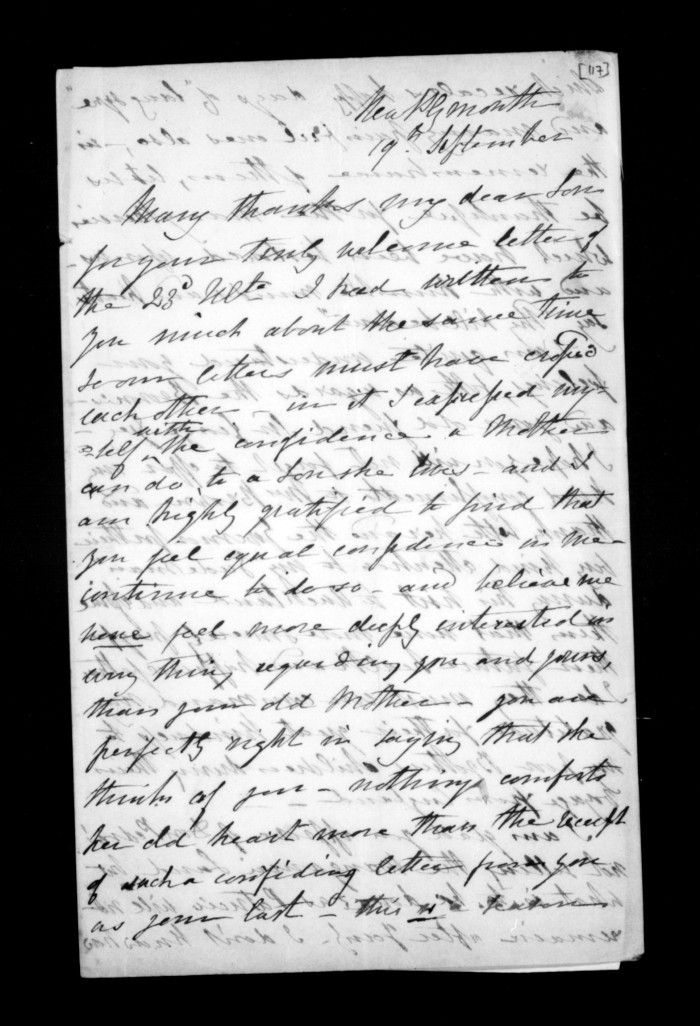 [117]
New Plymouth
19th September
Many thanks my dear Son
for your truly welcome letter of
the 23d Ulto I had written to
you much about the same time
so our letters must have crossed
each other - in it I expressed my-
-self with the confidence a Mother
can do, to a Son she loves - and I
am highly gratified to find that
you feel equal confidence in me -
continue to do so - and believe me
none feel more deeply interested in
every thing regarding you and yours,
than your old Mother - you are
perfectly right in saying that she
thinks of you - nothing comforts
her old heart more than the receipt
of such a confiding letter from you
as your last - this is a season